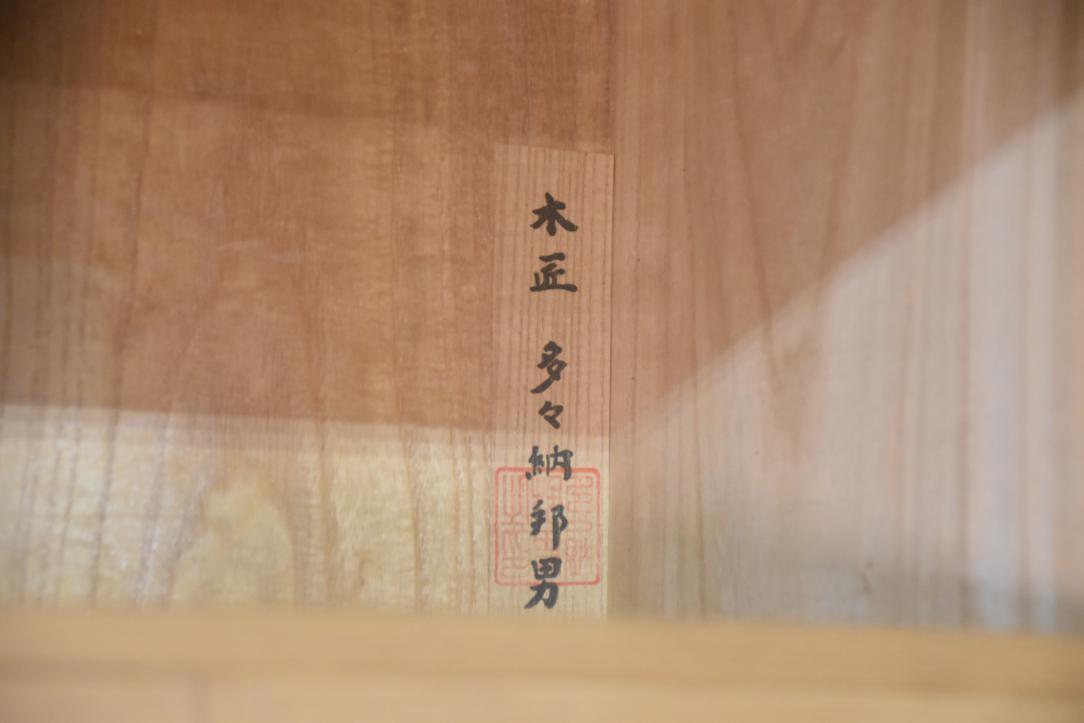 木匠 多々納邦男